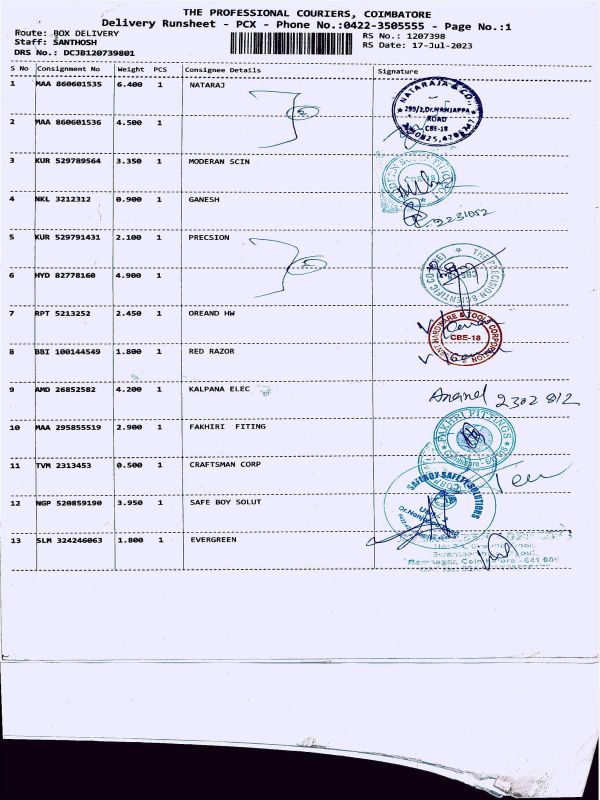 THE PROFESSIONAL COURIERS, COIMBATORE
Delivery Runsheet - PCX - Phone No.:0422-3505555 - Page No.:1
Route: BOX DELIVERY RS No.: 1207398
Staff: SANTHOSH RS Date: 17-Jul-2023
DRS No.: DCJB120739801
S No Consignment No Weight PCS Consignee Details Signature
1 MAA 860601535 6.400 1 NATARAJ
NATARAJA & CO.,
299/1,Dr.NANJAPPA
ROAD
CBE-18
2 MAA 860601536 4.500 1
3 KUR 529789564 3.350 1 MODERAN SCIN
4 NKL 3212312 0.900 1 GANESH
2231052
5 KUR 529791431 2.100 1 PRECSION
THE PRECISION SCIENTIFIC CO (CBE)
6 HYD 82778160 4.900 1
7 RPT 5213252 2.450 1 OREAND HW
HARDWARE & TOOLS CORPORATION
CBE-18
8 BBI 100144549 1.800 1 RED RAZOR
9 AMD 26852582 4.200 1 KALPANA ELEC
Anand 2302 812
10 MAA 295855519 2.900 1 FAKHIRI FITING
FAKHRI FITTINGS
11 TVM 2313453 0.500 1 CRAFTSMAN CORP
12 NGP 520859190 3.950 1 SAFE BOY SOLUT
SAFEBOY SAFETY SOLUTIONS
13 SLM 324246063 1.800 1 EVERGREEN
Ramnagar, Coimbatore - 641 009